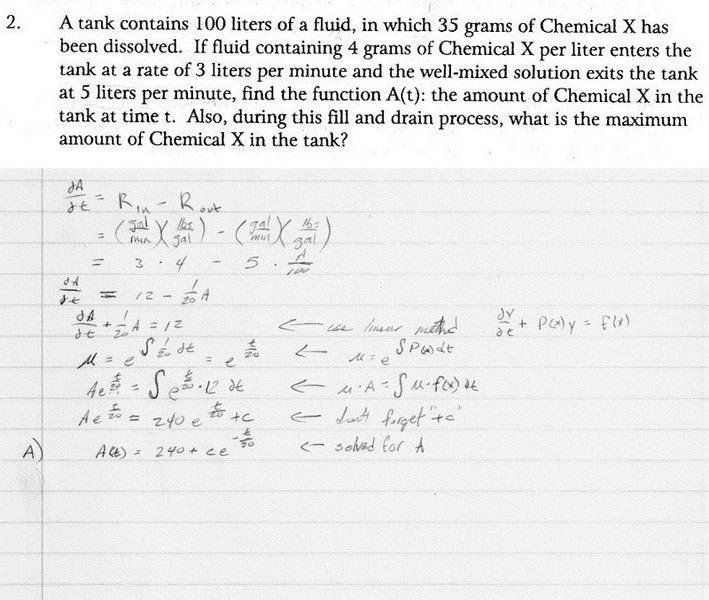 2. A tank contains 100 liters of a fluid, in which 35 grams of Chemical X has
been dissolved. If fluid containing 4 grams of Chemical X per liter enters the
tank at a rate of 3 liters per minute and the well-mixed solution exits the tank
at 5 liters per minute, find the function A(t): the amount of Chemical X in the
tank at time t. Also, during this fill and drain process, what is the maximum
amount of Chemical X in the tank?
dA/dt = R in - R out
= (gal/min)(lbs/gal) - (gal/min)(lbs/gal)
= 3 · 4 - 5 · A/100
dA/dt = 12 - 1/20 A
dA/dt + 1/20 A = 12 ← use linear method dy/dt + P(x)y = f(x)
μ = e^∫ 1/20 dt = e^t/20 ← μ = e^∫P(x)dt
Ae^t/20 = ∫e^t/20 · 12 dt ← μ·A = ∫μ·f(x) dt
Ae^t/20 = 240 e^t/20 + c ← don't forget "+c"
A) A(t) = 240 + ce^-t/20 ← solved for A